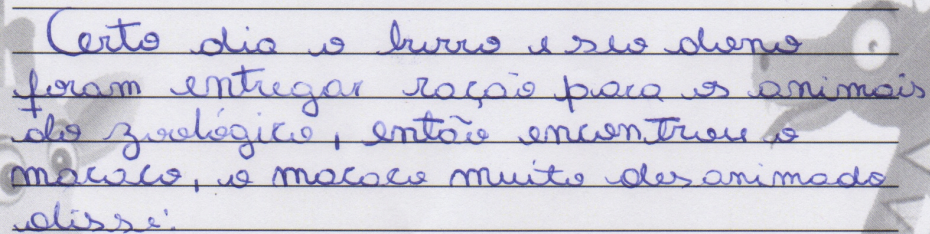 Certo dia o burro e seu dono
foram entregar ração para os animais
do zoológico, então encontrou o
macaco, o macaco muito desanimado
disse: